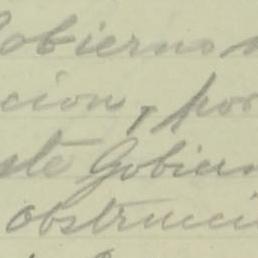 Gobierno
cion, por
ste Gobiern
obstrucci